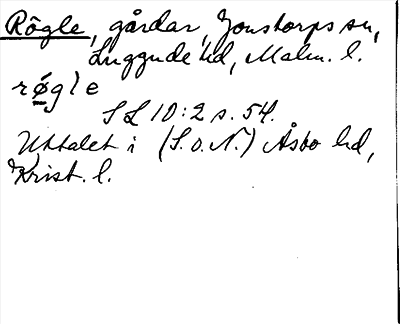 Rögle, gårdar, Jonstorps sn,
Luggude hd, Malm. l.
rø̱gle
SL 10:2 s. 54.
Uttalet i (S.o.N.) Åsbo hd,
Krist. l.